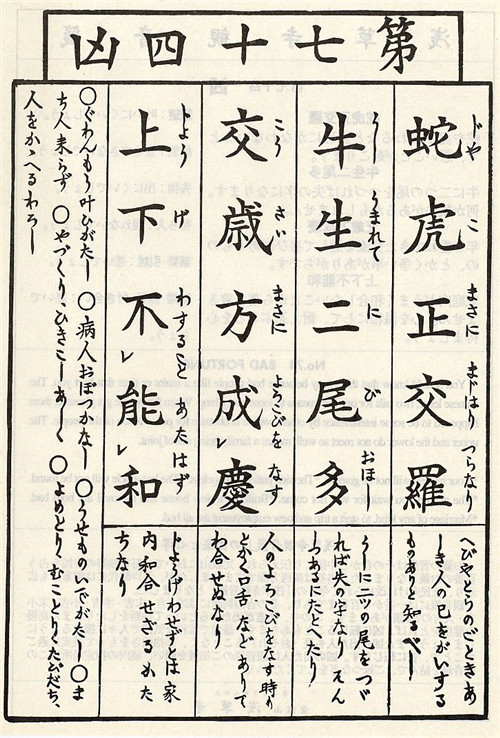 第七十四凶
じや こ まさに まじはり つらなり
蛇虎正交羅
へびやとらのごときあ
しき人の已をがいする
ものありと知るべし
うまれて に び おほし
牛生二尾多
うしに二ッ尾をつゞ
れば失の字なり
つあるにたとへたり
こう さい まさに よろこびを なす
交歳方成レ慶
人のよろこびをなす時り
とかく口舌などありて
わ合せぬなり
じよう げ わすること あたはず
上下不レ能レ和
じようげわせずとは家
内和合せざるかた
ちなり
〇ぐわんもう叶ひがたし 〇病人おぼつかなし 〇うせものいでがたし 〇ま
ち人来らず 〇やづくり、ひきこしあしく 〇よめとり、むことり、たびだち、
人をかゝへるわろし